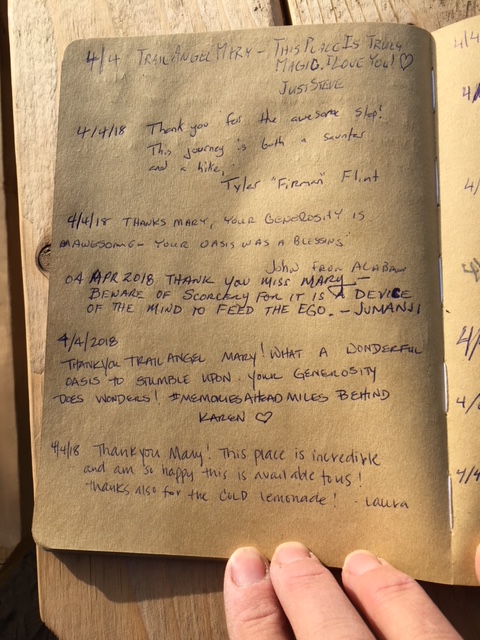 4/4 TRAIL ANGEL MARY - THIS PLACE IS TRULY
MAGIC. I LOVE YOU! ♡
JUST STEVE
4/4/18 Thank you for the awesome stop!
This journey is both a saunter
and a hike,
Tyler "Firman" Flint
4/4/18 THANKS MARY, YOUR GENEROSITY IS
AWESOME - YOUR OASIS WAS A BLESSING
John FROM ALABAMA
04 APR 2018 THANK YOU MISS MARY —
BEWARE OF SCORCERY FOR IT IS A DEVICE
OF THE MIND TO FEED THE EGO. - JUMANJI
4/4/2018
THANK YOU TRAIL ANGEL MARY! WHAT A WONDERFUL
OASIS TO STUMBLE UPON. YOUR GENEROSITY
DOES WONDERS! #MEMORIESAHEADMILES BEHIND
KAREN ♡
4/4/18 Thank you Mary! This place is incredible
and am so happy this is available to us!
Thanks also for the COLD lemonade! - Laura
4/4
4/
4/
4/
4/4